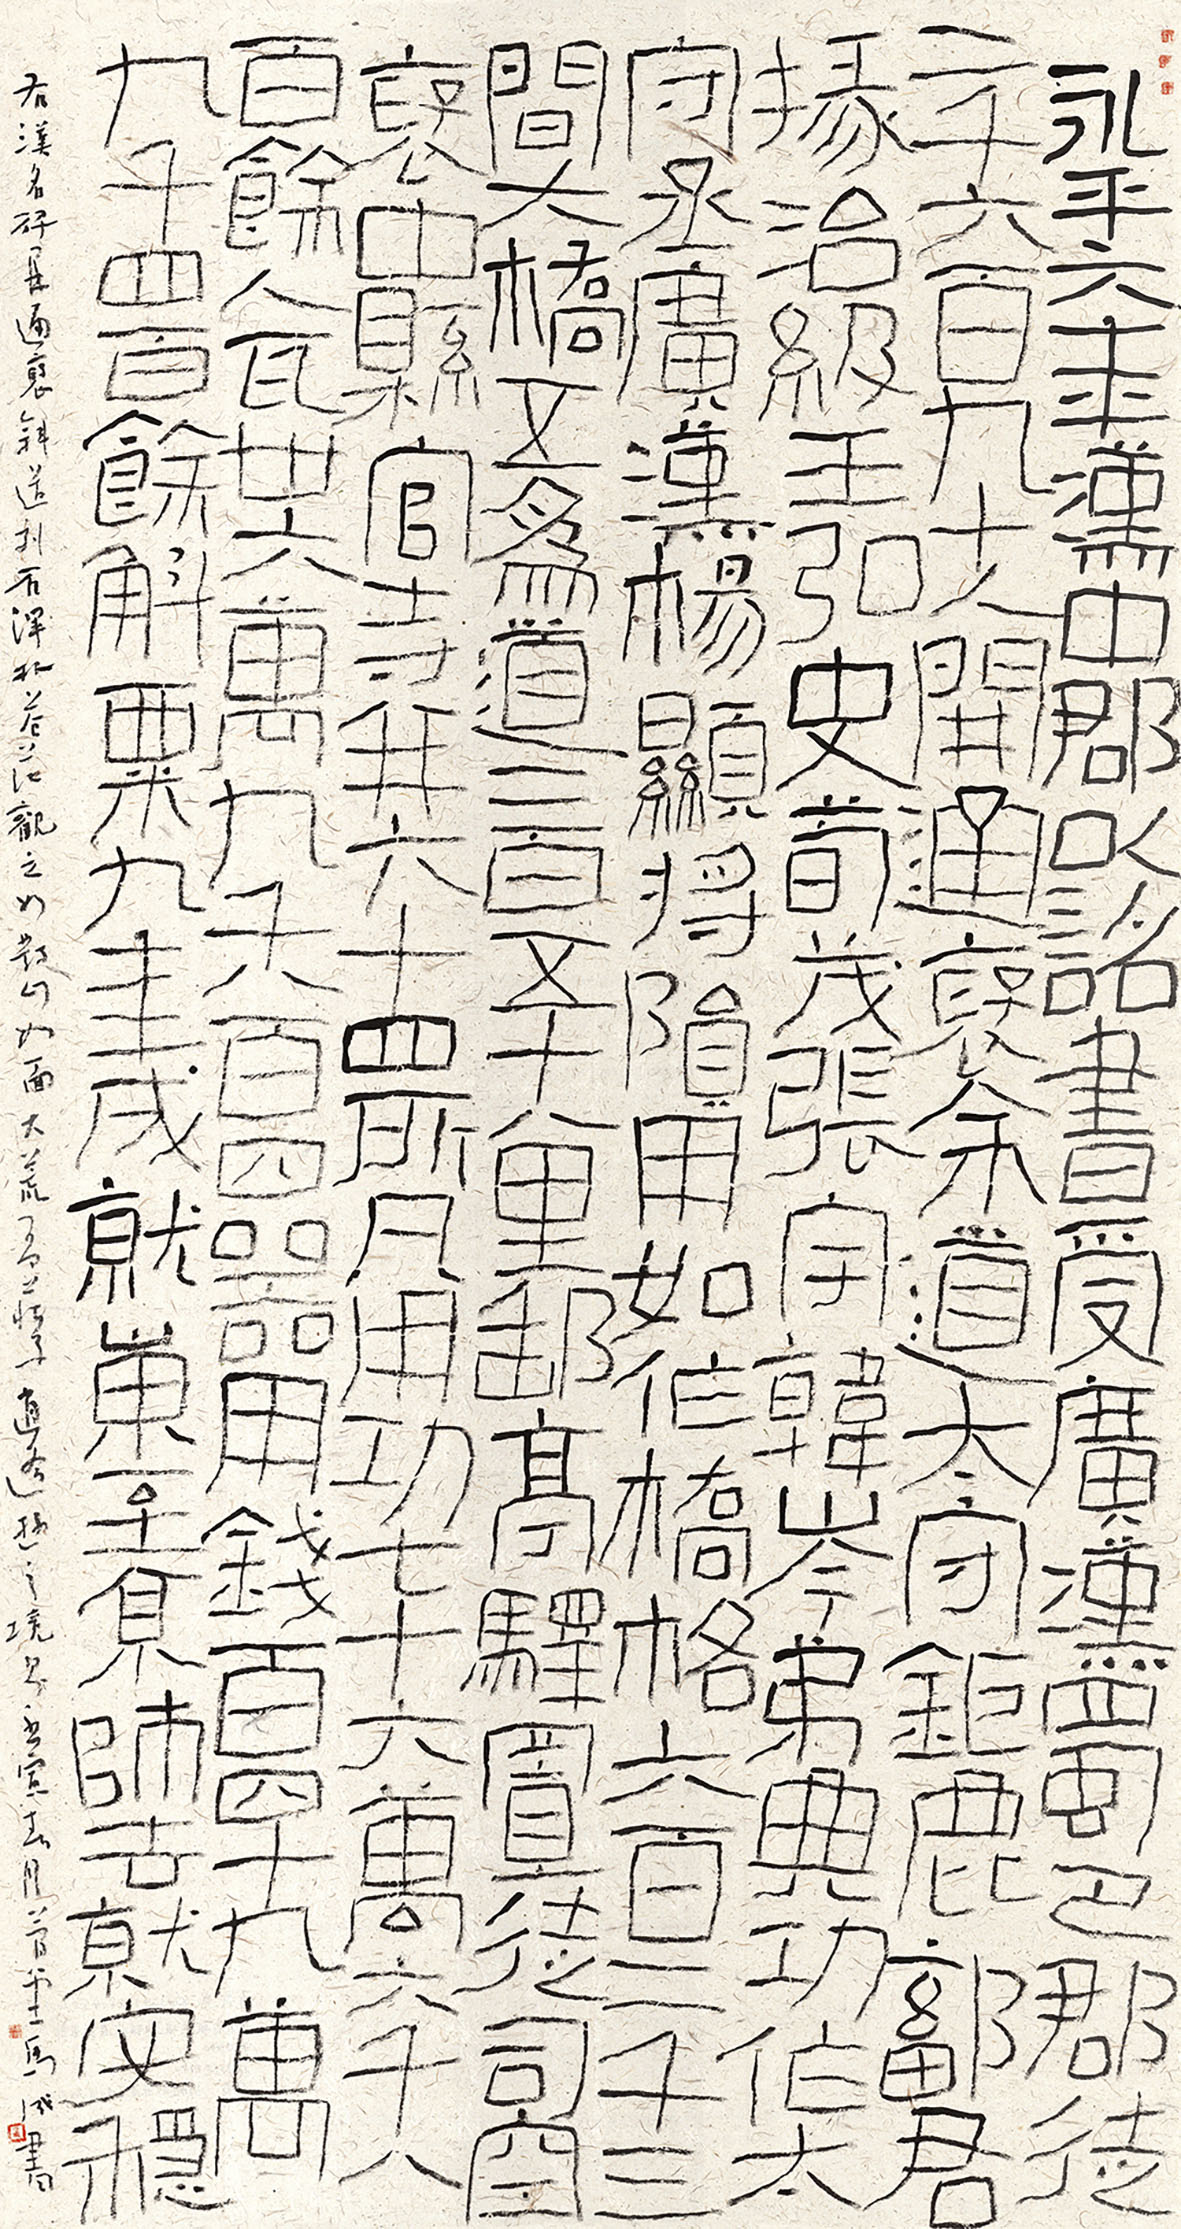 永平六年漢中郡以詔書受廣漢蜀郡巴郡徒
二千六百九十人開通褒余道太守鉅鹿鄐君
掾治級王弘史荀茂張宇韓岑弟典功作太
守丞廣漢楊顯將隕用始作橋格六百二十三
間大橋五為道二百五十八里郵亭驛置徒司空
褒中縣官寺并六十四所凡用功七十六萬六千八
百餘人瓦卅六萬九千八百四器用錢百四十九萬四
九千四百餘斛粟九年成就東至京師去就安穩
右漢名碑開通褒斜道刻石渾朴蒼茫觀之如